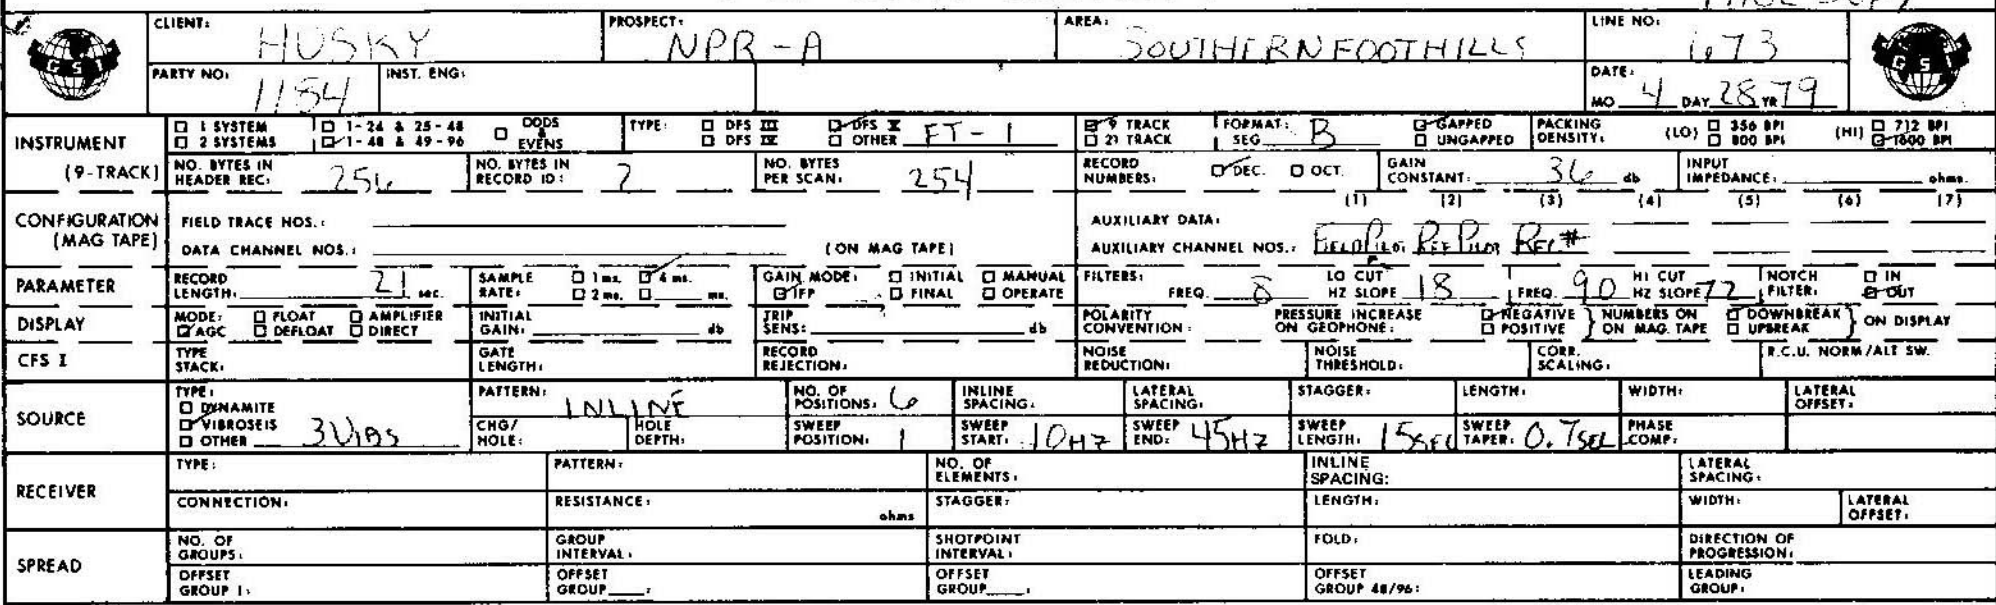 CLIENT: HUSKY PROSPECT: NPR-A AREA: SOUTHERN FOOTHILLS LINE NO: 673
GSI GSI
PARTY NO: 1184 INST. ENG: DATE: MO 4 DAY 28 YR 79
INSTRUMENT (9-TRACK)
1 SYSTEM 1-24 & 25-48 ODDS & EVENS TYPE: DFS III DFS V FT-1 9 TRACK FORMAT: B GAPPED PACKING (LO) 356 BPI (HI) 712 BPI
2 SYSTEMS 1-48 & 49-96 DFS IV OTHER 21 TRACK SEG UNGAPPED DENSITY: 800 BPI 1600 BPI
NO. BYTES IN HEADER REC: 256 NO. BYTES IN RECORD ID: 2 NO. BYTES PER SCAN: 254 RECORD NUMBERS: DEC. OCT. GAIN CONSTANT: 36 db INPUT IMPEDANCE: ohms.
CONFIGURATION (MAG TAPE)
(1) (2) (3) (4) (5) (6) (7)
FIELD TRACE NOS.: AUXILIARY DATA:
DATA CHANNEL NOS.: (ON MAG TAPE) AUXILIARY CHANNEL NOS.: FIELD PILOT REF PILOT REC#
PARAMETER RECORD LENGTH: 21 sec. SAMPLE RATE: 1 ms. 4 ms. 2 ms. ms. GAIN MODE: INITIAL MANUAL IFP FINAL OPERATE FILTERS: FREQ. 8 LO CUT HZ SLOPE 18 FREQ. 90 HI CUT HZ SLOPE 72 NOTCH FILTER: IN OUT
DISPLAY MODE: FLOAT AMPLIFIER AGC DEFLOAT DIRECT INITIAL GAIN: db TRIP SENS: db POLARITY CONVENTION: PRESSURE INCREASE ON GEOPHONE: NEGATIVE POSITIVE NUMBERS ON ON MAG. TAPE DOWNBREAK UPBREAK ON DISPLAY
CFS I TYPE STACK: GATE LENGTH: RECORD REJECTION: NOISE REDUCTION: NOISE THRESHOLD: CORR. SCALING: R.C.U. NORM/ALT SW.
SOURCE TYPE: DYNAMITE VIBROSEIS OTHER 3 VIBS
PATTERN: INLINE NO. OF POSITIONS: 6 INLINE SPACING: LATERAL SPACING: STAGGER: LENGTH: WIDTH: LATERAL OFFSET:
CHG/HOLE: HOLE DEPTH: SWEEP POSITION: 1 SWEEP START: 10HZ SWEEP END: 45HZ SWEEP LENGTH: 15SEC SWEEP TAPER: 0.7SEC PHASE COMP:
RECEIVER TYPE: PATTERN: NO. OF ELEMENTS: INLINE SPACING: LATERAL SPACING:
CONNECTION: RESISTANCE: ohms STAGGER: LENGTH: WIDTH: LATERAL OFFSET:
SPREAD NO. OF GROUPS: GROUP INTERVAL: SHOTPOINT INTERVAL: FOLD: DIRECTION OF PROGRESSION:
OFFSET GROUP 1: OFFSET GROUP : OFFSET GROUP : OFFSET GROUP 48/96: LEADING GROUP: